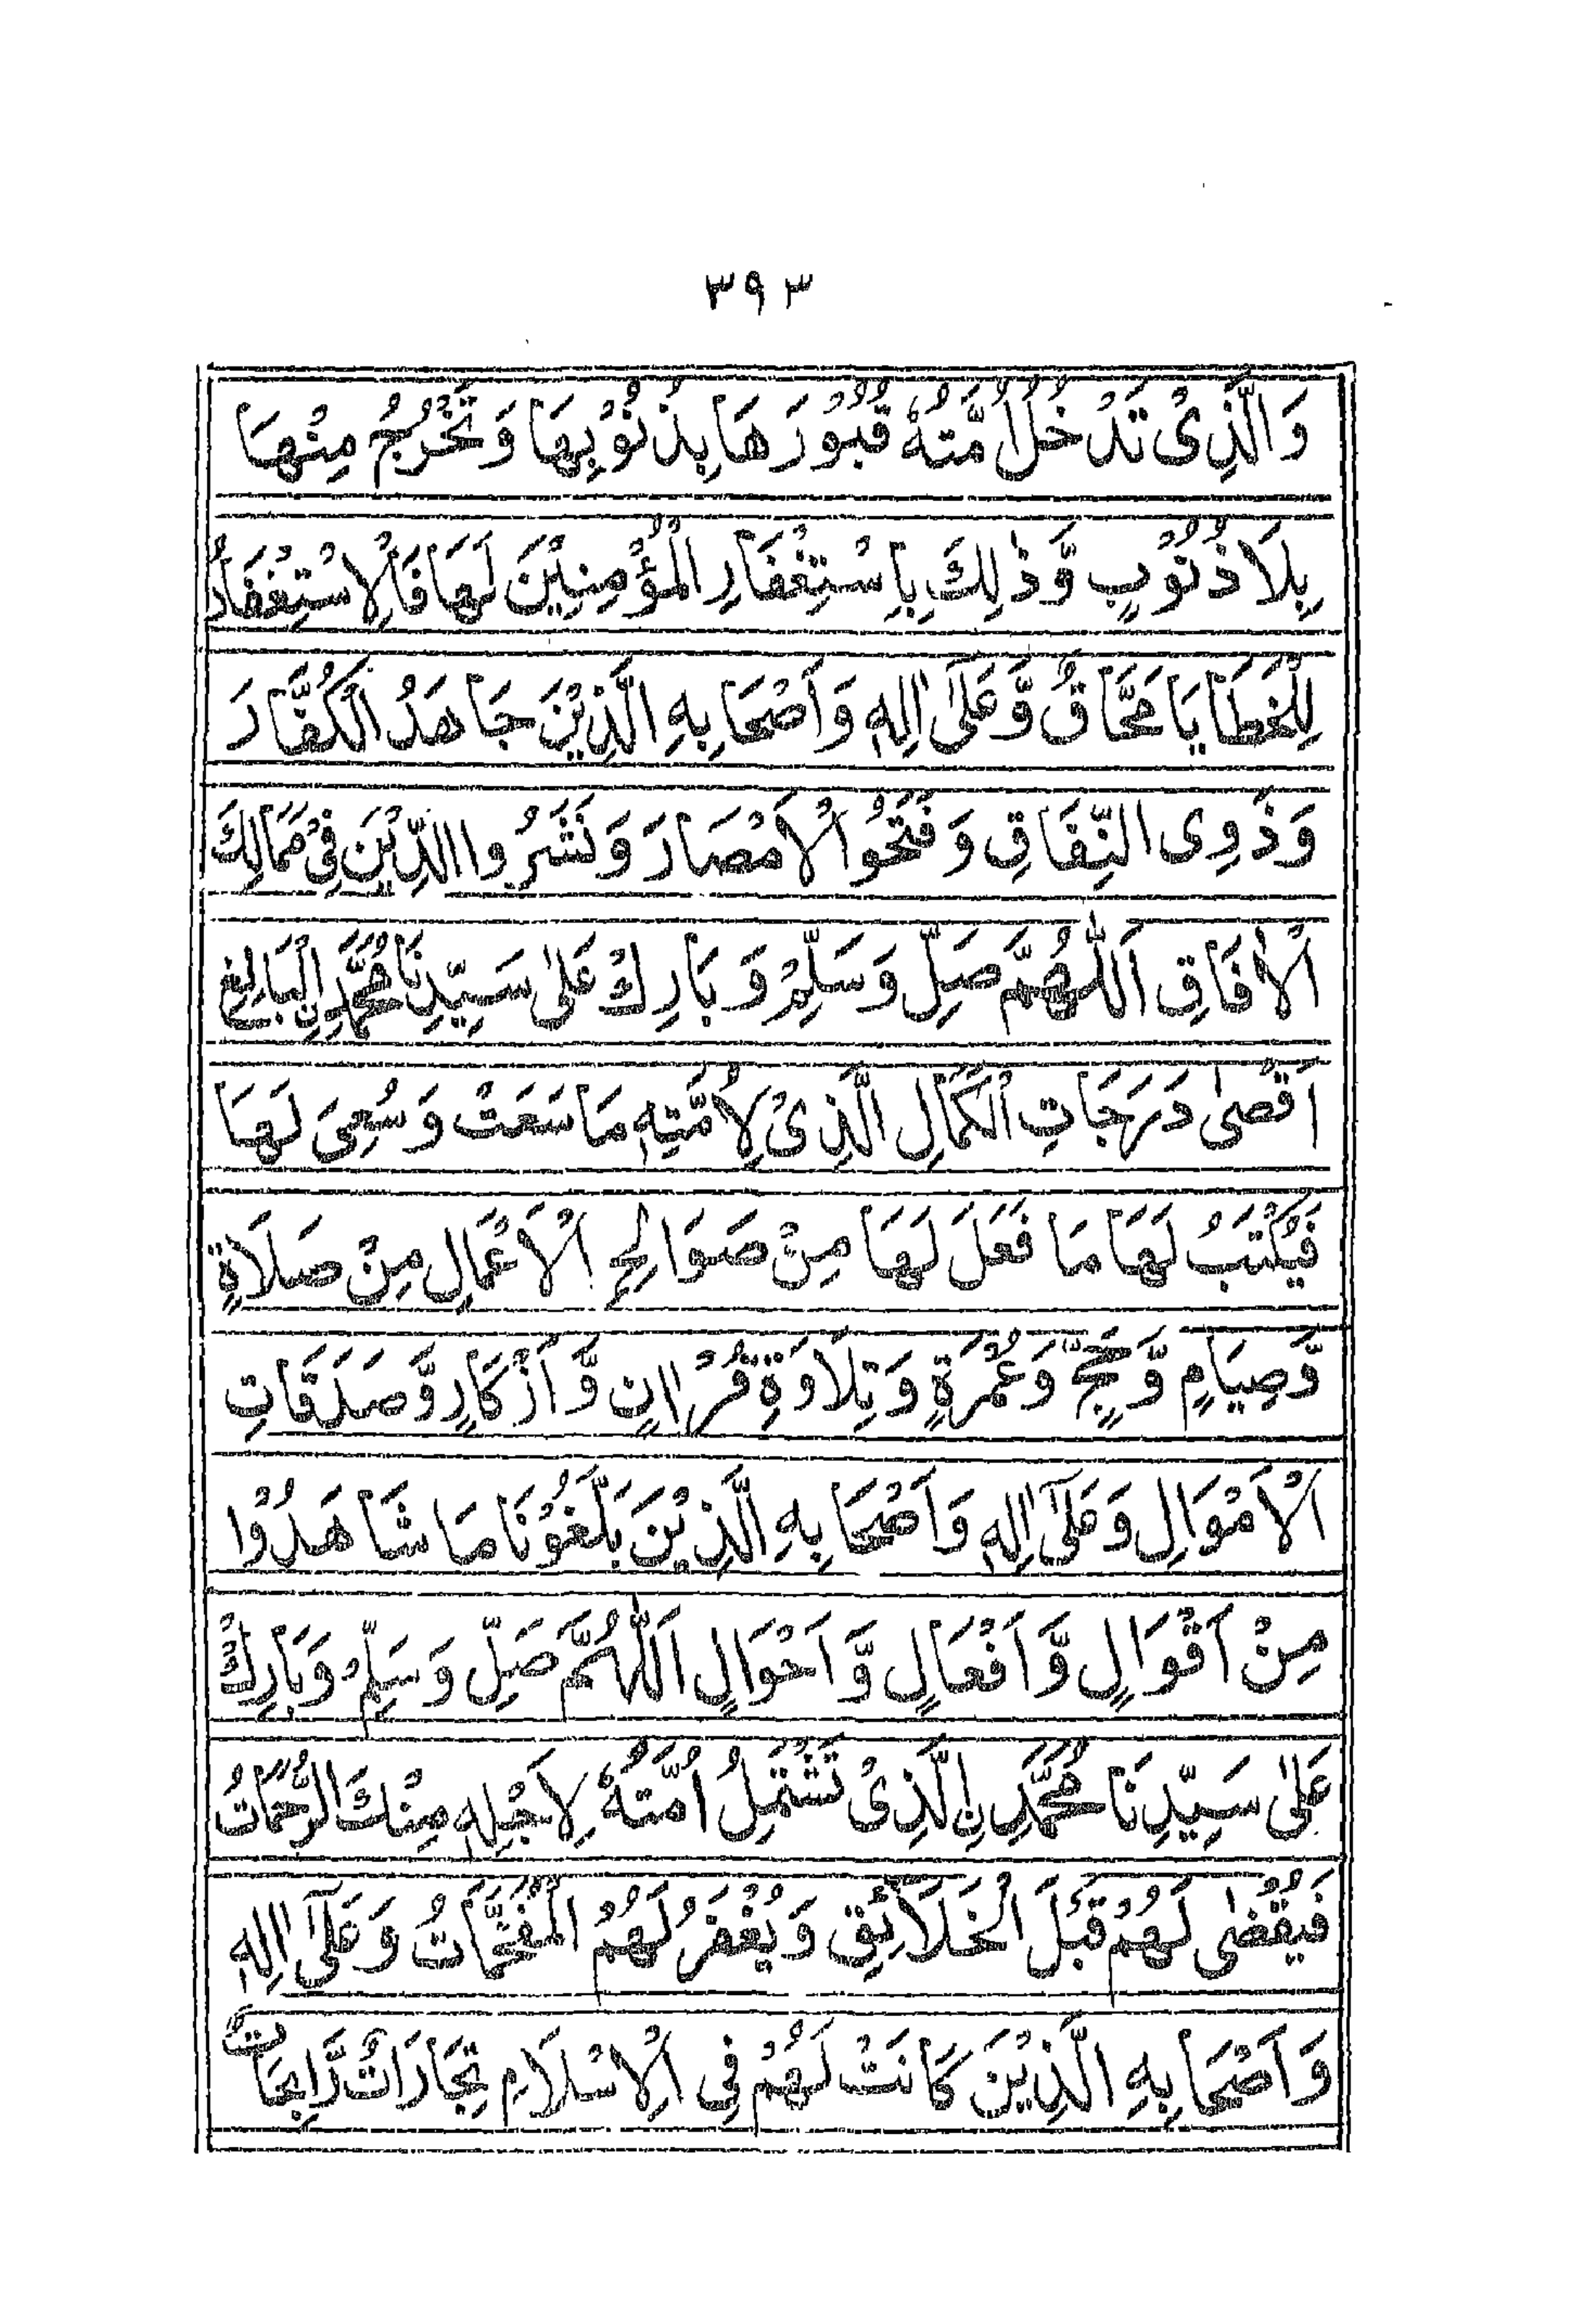 ٣٩٣
وَالَّذِىْ تَدْخُلُ اُمَّتُهٗ قُبُوْرَهَا بِذُنُوْبِهَا وَتَخْرُجُ مِنْهَا
بِلَا ذُنُوْبٍ وَّذٰلِكَ بِاِسْتِغْفَارِ الْمُؤْمِنِيْنَ لَهَا فَالْاِسْتِغْفَارُ
لِلْخَطَايَا مَحَّاقٌ وَّعَلٰٓى اٰلِهٖ وَاَصْحَابِهِ الَّذِيْنَ جَاهَدُ الْكُفَّارَ
وَذَوِى النِّفَاقِ وَفَتَحُوا الْاَمْصَارَ وَنَشَرُوا الدِّيْنَ فِىْ مَمَالِكَ
الْاٰفَاقِ اَللّٰهُمَّ صَلِّ وَسَلِّمْ وَبَارِكْ عَلٰى سَيِّدِنَا مُحَمَّدِنِ الْبَالِغِ
اَقْصٰى دَرَجَاتِ الْكَمَالِ الَّذِىْ لِاُمَّتِهٖ مَا سَعَتْ وَسُعِىَ لَهَا
فَيُكْتَبُ لَهَا مَا فَعَلَ لَهَا مِنْ صَوَالِحِ الْاَعْمَالِ مِنْ صَلَاةٍ
وَّصِيَامٍ وَّحَجٍّ وَعُمْرَةٍ وَتِلَاوَةِ قُرْاٰنٍ وَّاَذْكَارٍ وَّصَدَقَاتِ
الْاَمْوَالِ وَعَلٰٓى اٰلِهٖ وَاَصْحَابِهِ الَّذِيْنَ بَلَّغُوْنَا مَا شَاهَدُوْا
مِنْ اَقْوَالٍ وَّاَفْعَالٍ وَّاَحْوَالٍ اَللّٰهُمَّ صَلِّ وَسَلِّمْ وَبَارِكْ
عَلٰى سَيِّدِنَا مُحَمَّدِنِ الَّذِىْ تَشْتَمِلُ اُمَّتُهٗ لِاَجْلِهٖ مِنْكَ الرَّحَمَاتُ
فَيُقْضٰى لَهُمْ قَبْلَ الْخَلَائِقِ وَيُغْفَرُ لَهُمُ الْمُفْحَمَّاتُ وَعَلٰٓى اٰلِهٖ
وَاَصْحَابِهِ الَّذِيْنَ كَانَتْ لَهُمْ فِى الْاِسْلَامِ تِجَارَاتٌ رَّابِحَاتٌ